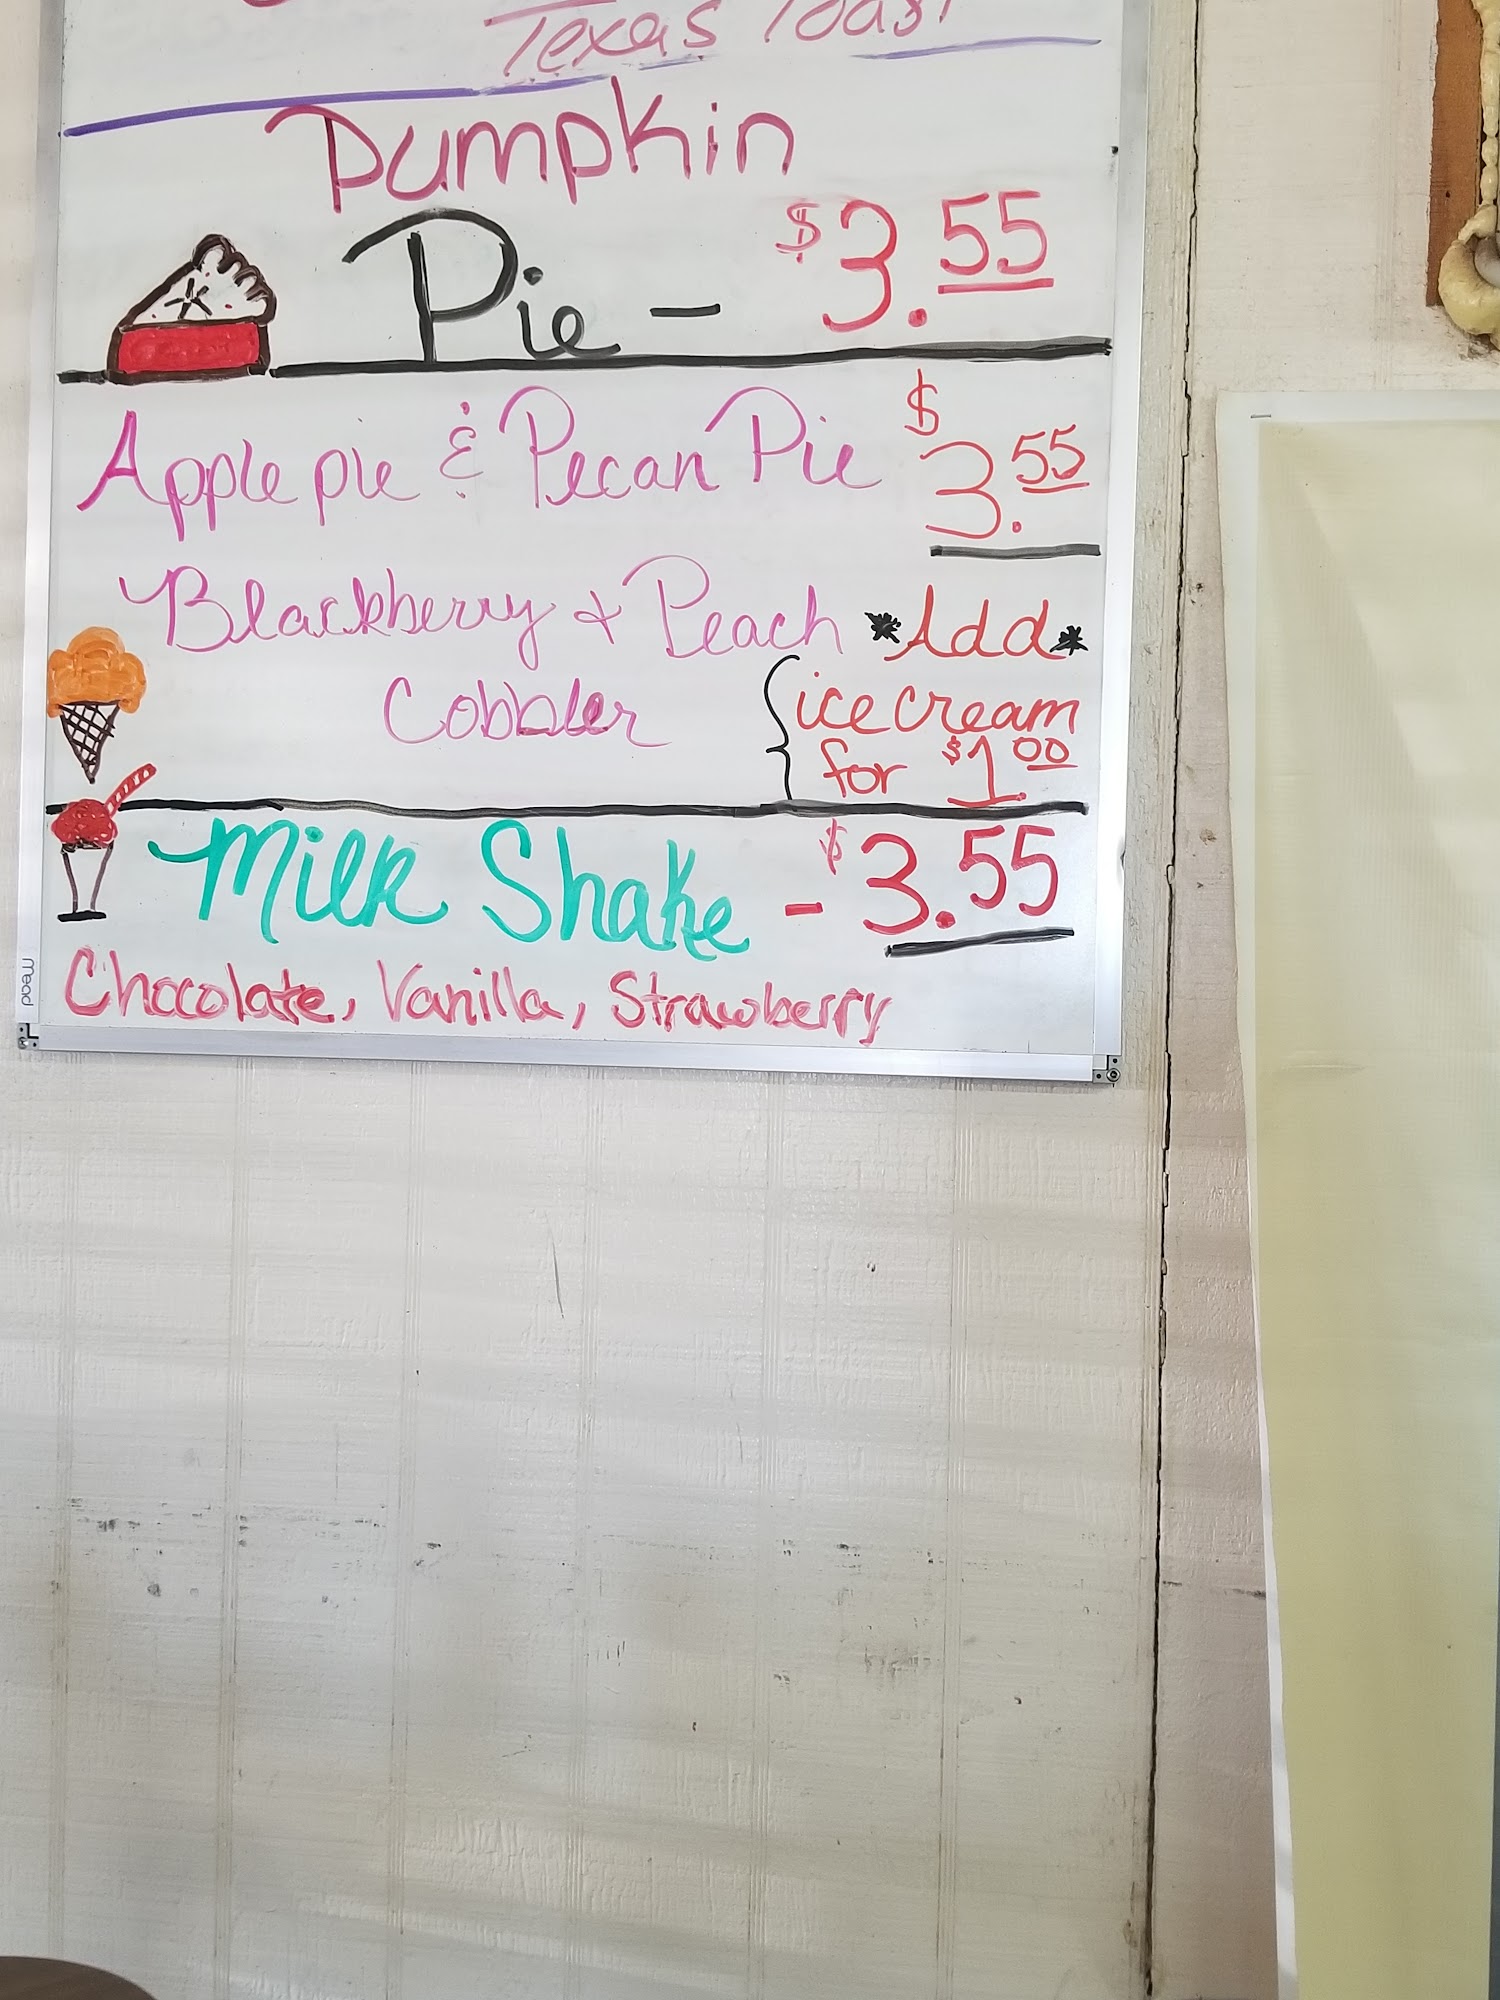 Texas Toast
Pumpkin
Pie - $3.55
Apple pie & Pecan Pie $3.55
Blackberry & Peach *Add*
Cobbler ice cream
for $1.00
Milk Shake - $3.55
Chocolate, Vanilla, Strawberry
Mead